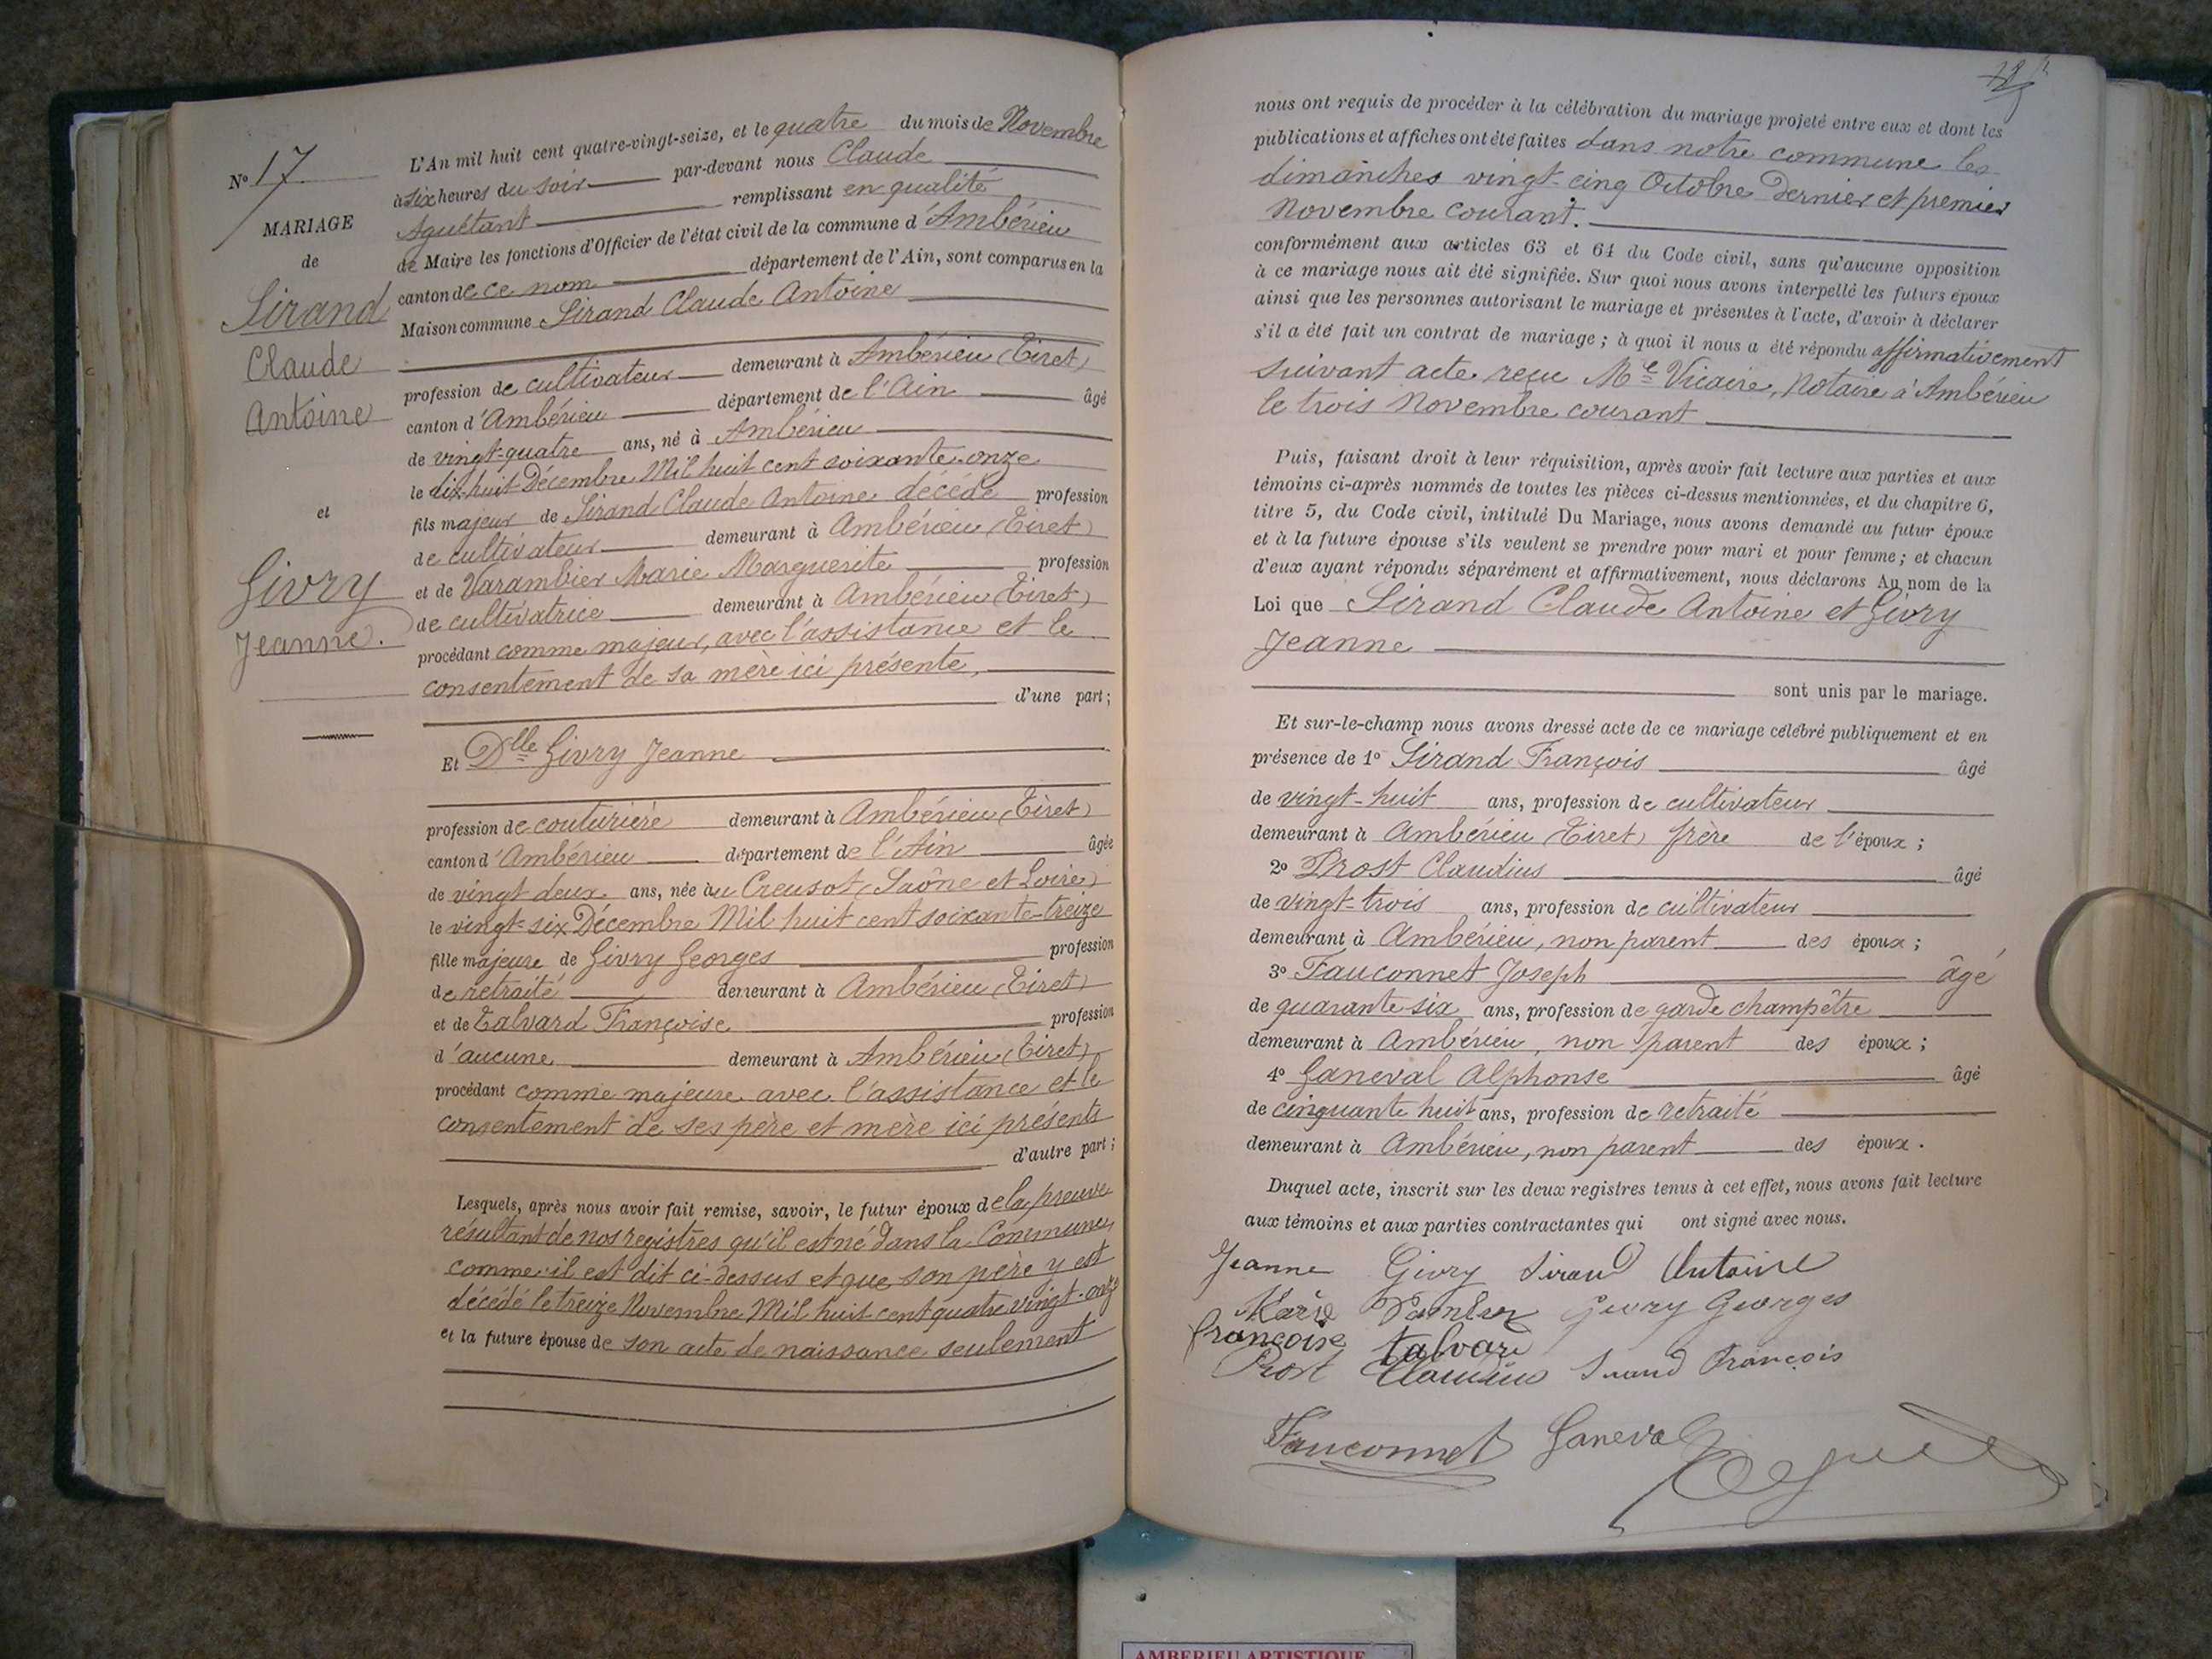 N° 17
MARIAGE
de
Sirand
Claude
Antoine
et
Givry
Jeanne.
L'An mil huit cent quatre-vingt-seize, et le quatre du mois de Novembre
à six heures du soir par-devant nous Claude
Aguétant remplissant en qualité
de Maire les fonctions d'Officier de l'état civil de la commune d'Ambérieu
canton de ce nom département de l'Ain, sont comparus en la
Maison commune Sirand Claude Antoine
profession de cultivateur demeurant à Ambérieu (Tiret)
canton d'Ambérieu département de l'Ain âgé
de vingt-quatre ans, né à Ambérieu
le dix-huit Décembre Mil huit cent soixante-onze
fils majeur de Sirand Claude Antoine décédé profession
de cultivateur demeurant à Ambérieu (Tiret)
et de Varambier Marie Marguerite profession
de cultivatrice demeurant à Ambérieu (Tiret)
procédant comme majeur, avec l'assistance et le
consentement de sa mère ici présente,
d'une part;
Et Dlle Givry Jeanne
profession de couturière demeurant à Ambérieu (Tiret)
canton d'Ambérieu département de l'Ain âgée
de vingt deux ans, née au Creusot (Saône et Loire)
le vingt-six Décembre Mil huit cent soixante-treize
fille majeure de Givry Georges profession
de retraité demeurant à Ambérieu (Tiret)
et de Talvard Françoise profession
d'aucune demeurant à Ambérieu (Tiret)
procédant comme majeure avec l'assistance et le
consentement de ses père et mère ici présents
d'autre part;
Lesquels, après nous avoir fait remise, savoir, le futur époux de la preuve
résultant de nos registres qu'il est né dans la Commune,
comme il est dit ci-dessus et que son père y est
décédé le treize Novembre Mil huit cent quatre vingt-onze
et la future épouse de son acte de naissance seulement
nous ont requis de procéder à la célébration du mariage projeté entre eux et dont les
publications et affiches ont été faites dans notre commune les
dimanches vingt-cinq Octobre Dernier et premier
Novembre courant.
conformément aux articles 63 et 64 du Code civil, sans qu'aucune opposition
à ce mariage nous ait été signifiée. Sur quoi nous avons interpellé les futurs époux
ainsi que les personnes autorisant le mariage et présentes à l'acte, d'avoir à déclarer
s'il a été fait un contrat de mariage; à quoi il nous a été répondu affirmativement
suivant acte reçu Me Vicaire, Notaire à Ambérieu
le trois Novembre courant
Puis, faisant droit à leur réquisition, après avoir fait lecture aux parties et aux
témoins ci-après nommés de toutes les pièces ci-dessus mentionnées, et du chapitre 6,
titre 5, du Code civil, intitulé Du Mariage, nous avons demandé au futur époux
et à la future épouse s'ils veulent se prendre pour mari et pour femme; et chacun
d'eux ayant répondu séparément et affirmativement, nous déclarons Au nom de la
Loi que Sirand Claude Antoine et Givry
Jeanne
sont unis par le mariage.
Et sur-le-champ nous avons dressé acte de ce mariage célébré publiquement et en
présence de 1° Sirand François âgé
de vingt-huit ans, profession de cultivateur
demeurant à Ambérieu (Tiret) frère de l'époux;
2° Prost Claudius âgé
de vingt-trois ans, profession de cultivateur
demeurant à Ambérieu, non parent des époux;
3° Fauconnet Joseph âgé
de quarante six ans, profession de garde champêtre
demeurant à Ambérieu, non parent des époux;
4° Ganeval Alphonse âgé
de cinquante huit ans, profession de retraité
demeurant à Ambérieu, non parent des époux.
Duquel acte, inscrit sur les deux registres tenus à cet effet, nous avons fait lecture
aux témoins et aux parties contractantes qui ont signé avec nous.
Jeanne Givry Sirand Antoine
Marie Givry Georges
françoise talvard
Prost Claudius Sirand François
Fauconnet Ganeval
AMBERIEU ARTISTIQUE